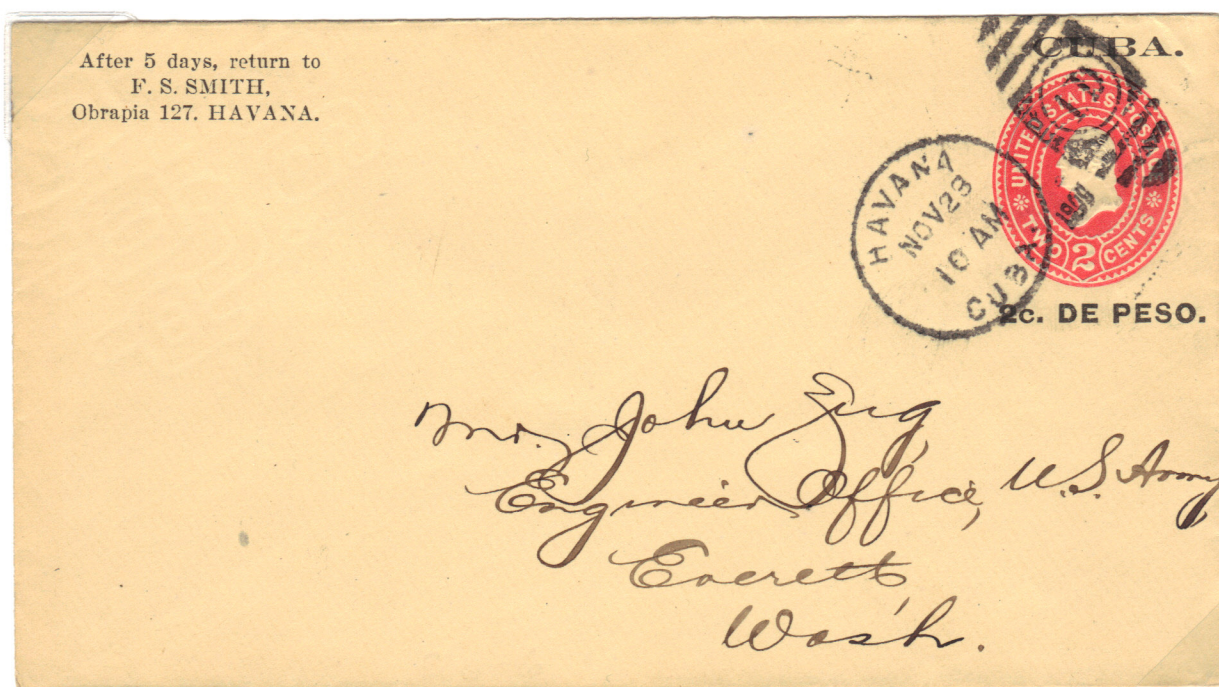 After 5 days, return to
F. S. SMITH,
Obrapia 127. HAVANA.
CUBA.
UNITED STATES POSTAGE
TWO 2 CENTS
2c. DE PESO.
HAVANA
NOV 28
10 AM
CUBA.
Mr. John Zug,
Engineer Office, U.S. Army
Everett,
Wash.